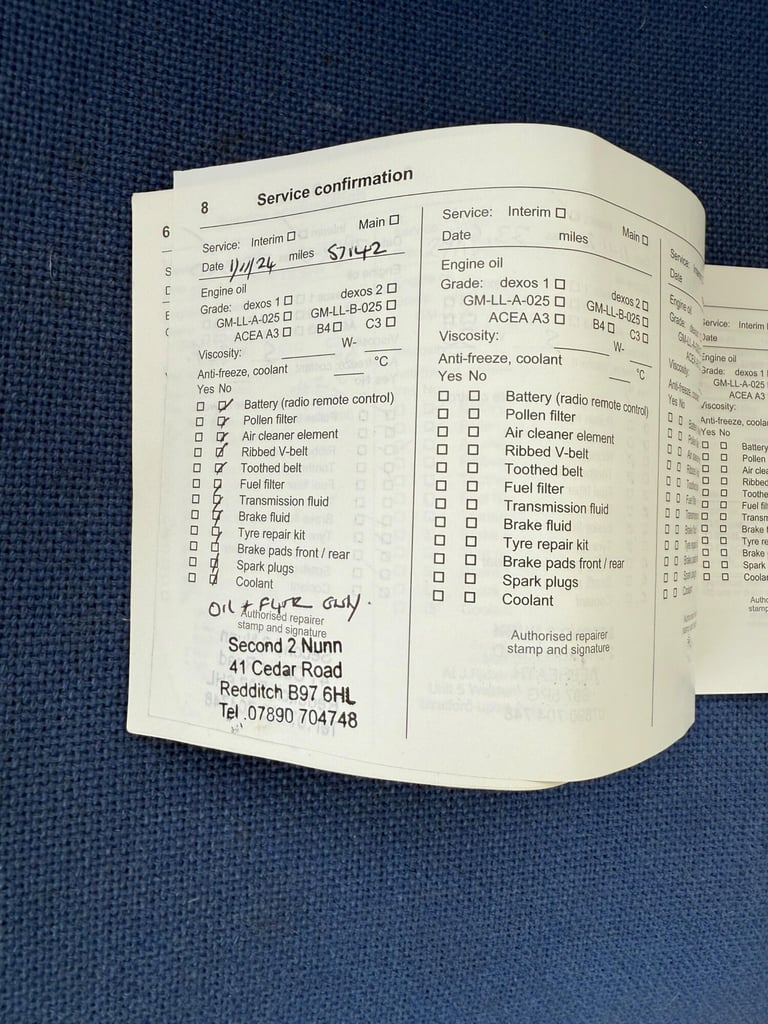 8 Service confirmation
6
Service: Interim Main
Date 1/11/24 miles 57142
Engine oil
Grade: dexos 1 dexos 2
GM-LL-A-025 GM-LL-B-025
ACEA A3 B4 C3
Viscosity: W-
Anti-freeze, coolant °C
Yes No
Battery (radio remote control)
Pollen filter
Air cleaner element
Ribbed V-belt
Toothed belt
Fuel filter
Transmission fluid
Brake fluid
Tyre repair kit
Brake pads front / rear
Spark plugs
Coolant
Oil + only.
Authorised repairer
stamp and signature
Second 2 Nunn
41 Cedar Road
Redditch B97 6HL
Tel .07890 704748
Service: Interim Main
Date miles
Engine oil
Grade: dexos 1 dexos 2
GM-LL-A-025 GM-LL-B-025
ACEA A3 B4 C3
Viscosity: W-
Anti-freeze, coolant °C
Yes No
Battery (radio remote control)
Pollen filter
Air cleaner element
Ribbed V-belt
Toothed belt
Fuel filter
Transmission fluid
Brake fluid
Tyre repair kit
Brake pads front / rear
Spark plugs
Coolant
Authorised repairer
stamp and signature
Service:
Date
Engine oil
Grade:
Viscosity:
Yes No
Service: Interim
Date
Engine oil
Grade: dexos 1
GM-LL-A-025
ACEA A3
Viscosity:
Anti-freeze, coola
Yes No
Battery
Pollen
Air clea
Ribbed
Toothe
Fuel fil
Transm
Brake f
Tyre re
Brake
Spark
Coolan
Autho
stamp